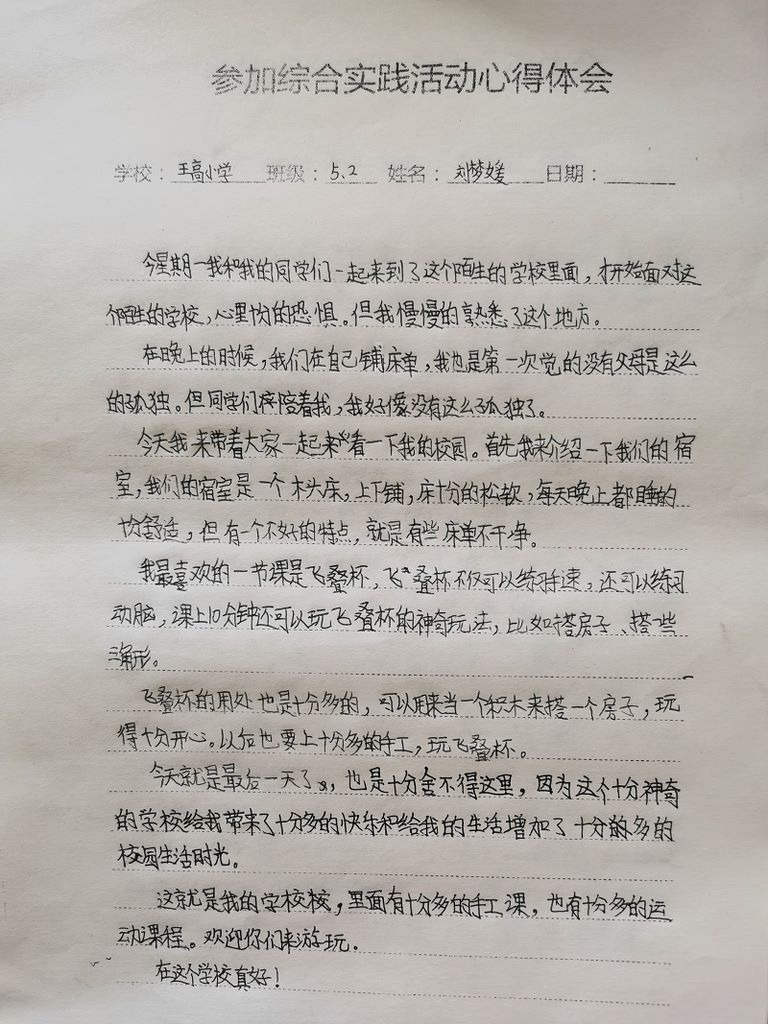 参加综合实践活动心得体会
学校：王高小学 班级：5.2 姓名：刘梦媛 日期：
今星期一我和我的同学们一起来到了这个陌生的学校里面，才开始面对这
个陌生的学校，心里十分的恐惧。但我慢慢的熟悉了这个地方。
在晚上的时候，我们在自己铺床单，我也是第一次觉的没有父母是这么
的孤独。但同学们陪着我，我好像没有这么孤独了。
今天我来带着大家一起来看一下我的校园。首先我来介绍一下我们的宿
室，我们的宿室是一个木头床，上下铺，床十分的松软，每天晚上都睡的
十分舒适，但有一个不好的特点，就是有些床单不干净。
我最喜欢的一节课是飞叠杯，飞叠杯不仅可以练习手速，还可以练习
动脑，课上10分钟还可以玩飞叠杯的神奇玩法，比如搭房子、搭一些
三角形。
飞叠杯的用处也是十分多的，可以用来当一个积木来搭一个房子，玩
得十分开心。以后也要上十分多的手工，玩飞叠杯。
今天就是最后一天了，也是十分舍不得这里，因为这个十分神奇
的学校给我带来了十分多的快乐和给我的生活增加了十分的多的
校园生活时光。
这就是我的学校，里面有十分多的手工课，也有十分多的运
动课程。欢迎你们来游玩。
在这个学校真好！